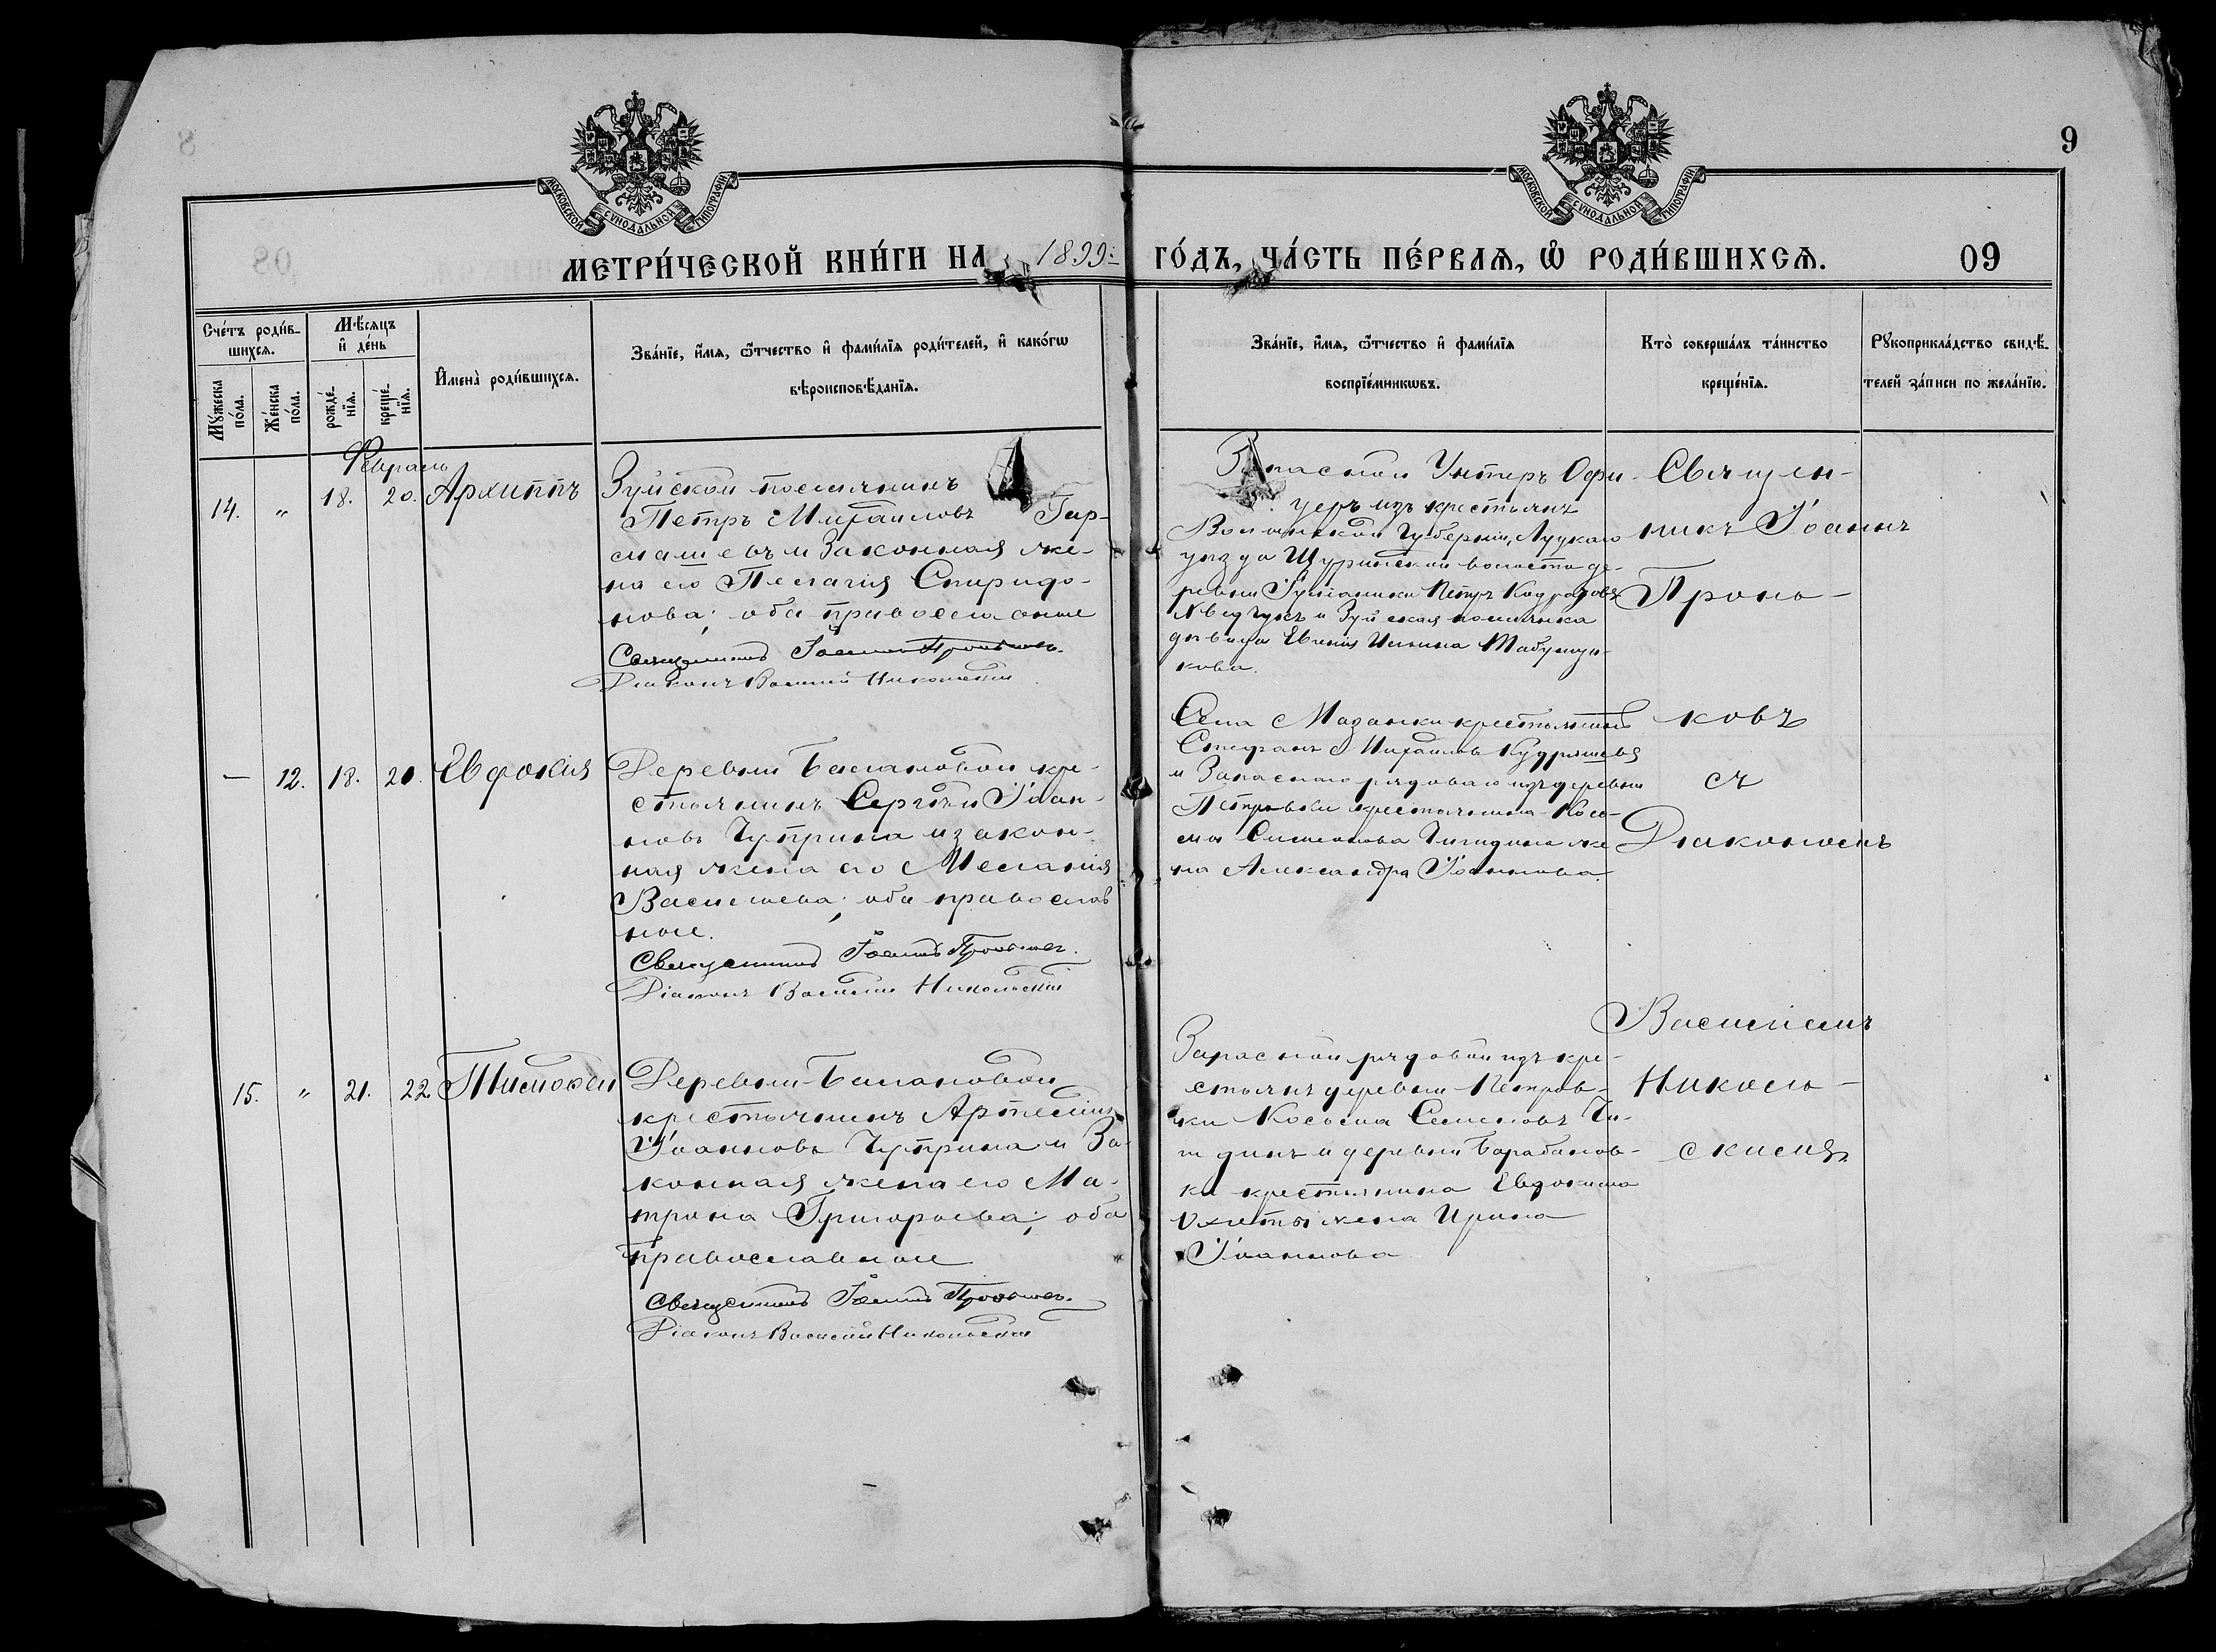 9
МОСКОВСКОЙ СѴНОДАЛЬНОЙ ТИПОГРАФІИ
МОСКОВСКОЙ СѴНОДАЛЬНОЙ ТИПОГРАФІИ
МЕТРИ́ЧЕСКОЙ КНИ́ГИ НА 1899: ГО́ДЪ, ЧА́СТЬ ПЕ́РВАѦ, Ѽ РОДИ́ВШИХСѦ. 09
Сче́тъ роди́в-
шихсѧ.
Мꙋ́жеска по́ла.
Же́нска по́ла.
Мѣ́сѧцъ
и҆ де́нь
рожде́-
нїѧ.
креще́-
нїѧ.
И҆мена̀ роди́вшихсѧ.
Зва́нїе, и҆́мѧ, ѻ҆́тчество и҆ фами́лїѧ роди́телей, и҆ како́гѡ
вѣроисповѣ́данїѧ.
Зва́нїе, и҆́мѧ, ѻ҆́тчество и҆ фами́лїѧ
воспрїе́мникѡвъ.
Кто̀ соверша́лъ та́инство
креще́нїѧ.
Рꙋкоприкла́дство свидѣ́-
телей за́писи по жела́нїю.
Февраль
14. „ 18. 20. Архиппъ
Зуйской поселянинъ
Петръ Михаиловъ Гар-
и Законная же-
на его Пелагія Спиридо-
нова; оба православные
Священникъ Іоаннъ Проньковъ.
Діаконъ Василій Никольскій
Запасный Унтеръ Офи-
церъ изъ крестьянъ
Волынской Губерніи, Луцкаго
уѣзда Щуринской волости де-
ревни Петръ
и Зуйская поселянка
дѣвица Евгенія Ильина Табунщи-
кова.
— 12. 18. 20. Евдокія
Деревни Балановой кре-
стьянинъ Сергѣй Іоан-
новъ Чуприна и закон-
ная жена его Меланія
Васильева; оба православ
ные.
Священникъ Іоаннъ Проньковъ.
Діаконъ Василій Никольскій
Села Мазанки крестьянинъ
Стефанъ Михаиловъ Кудряшевъ
и Запаснаго рядоваго изъ деревни
Петровки крестьянина Косъ-
мы Симеонова Чигидина же
на Александра Іоаннова.
15. „ 21. 22. Тимофей
Деревни Балановой
крестьянинъ Артемій
Іоанновъ Чуприна и За-
конная жена его Ма-
трона Григорьева; оба
православные
Священникъ Іоаннъ Проньковъ.
Діаконъ Василій Никольскій
Запасный рядовой изъ кре-
стьянъ деревни Петров-
ки Косьма Семеновъ Чи-
гидинъ и деревни Барабанов-
ки крестьянина Евдокима
жена Ирина
Іоаннова
Священ-
никъ Іоаннъ
Пронь-
ковъ
съ
Діакономъ
Василіемъ
Николь-
скимъ